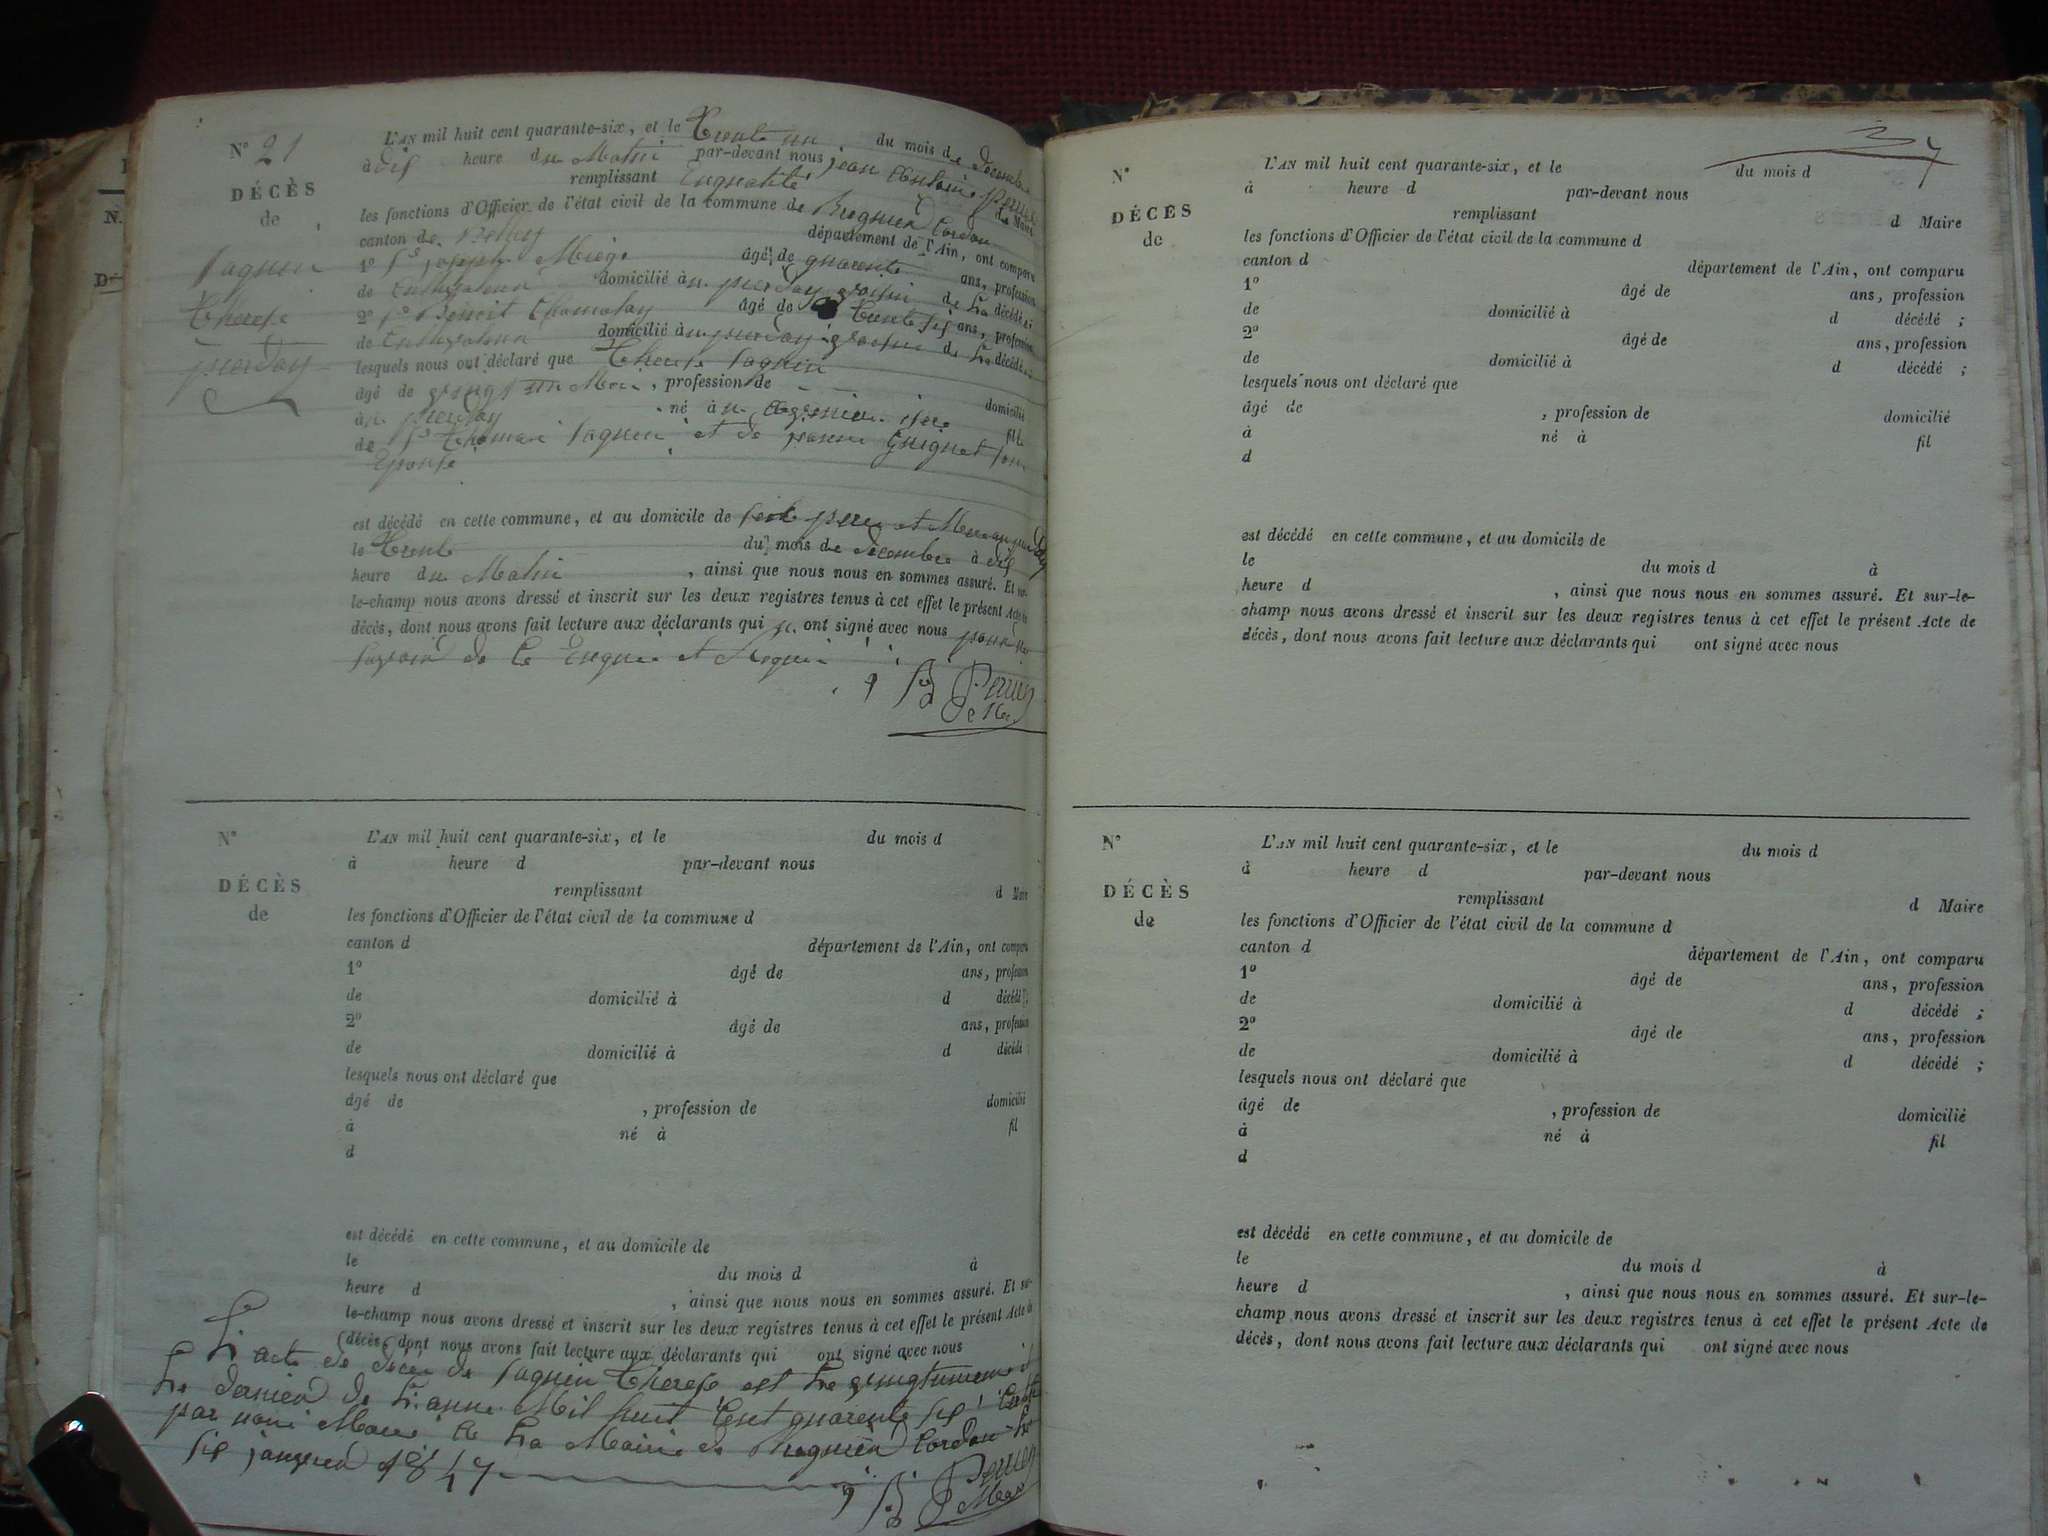 N° 21
DÉCÈS
de
Paquin
Therese
pierday
L'AN mil huit cent quarante-six, et le Trente un du mois de Décembre
à dix heure du Matin par-devant nous jean Antoine
remplissant Enqualité de Maire
les fonctions d'Officier de l'état civil de la commune de Bregnier Cordon
canton de Belley département de l'Ain, ont comparu
1° joseph Miege âgé de quarente ans, profession
de Cultivateur domicilié à voisin de La décédée;
2° Benoit âgé de Trente six ans, profession
de Cultivateur domicilié à voisin de La décédée
lesquels nous ont déclaré que Therese Paquin
âgé de vingt un Moi, profession de domicilié
à né à isere fille
de Paquin et de Guignet son
Epouse
est décédé en cette commune, et au domicile de pere et Mere
le Trente du mois de décembre à dix
heure du Matin, ainsi que nous nous en sommes assuré. Et sur-
le-champ nous avons dressé et inscrit sur les deux registres tenus à cet effet le présent Acte de
décès, dont nous avons fait lecture aux déclarants qui n. ont signé avec nous pour ne
savoir de Ce Enqui et Requi
N°
DÉCÈS
de
L'AN mil huit cent quarante-six, et le du mois d
à heure d par-devant nous
remplissant d Maire
les fonctions d'Officier de l'état civil de la commune d
canton d département de l'Ain, ont comparu
1° âgé de ans, profession
de domicilié à d décédé ;
2° âgé de ans, profession
de domicilié à d décédé ;
lesquels nous ont déclaré que
âgé de , profession de domicilié
à né à fil
d
est décédé en cette commune, et au domicile de
le du mois d à
heure d , ainsi que nous nous en sommes assuré. Et sur-
le-champ nous avons dressé et inscrit sur les deux registres tenus à cet effet le présent Acte de
décès, dont nous avons fait lecture aux déclarants qui ont signé avec nous
L'acte de déces de Paquin Therese est Le vingtunieme et
Le dernier de L'anne Mil huit Cent quarente six
par nous Maire à La Mairie de Bregnier Cordon Le
six janvier 1847
N°
DÉCÈS
de
L'AN mil huit cent quarante-six, et le du mois d
à heure d par-devant nous
remplissant d Maire
les fonctions d'Officier de l'état civil de la commune d
canton d département de l'Ain, ont comparu
1° âgé de ans, profession
de domicilié à d décédé ;
2° âgé de ans, profession
de domicilié à d décédé ;
lesquels nous ont déclaré que
âgé de , profession de domicilié
à né à fil
d
est décédé en cette commune, et au domicile de
le du mois d à
heure d , ainsi que nous nous en sommes assuré. Et sur-le-
champ nous avons dressé et inscrit sur les deux registres tenus à cet effet le présent Acte de
décès, dont nous avons fait lecture aux déclarants qui ont signé avec nous
N°
DÉCÈS
de
L'AN mil huit cent quarante-six, et le du mois d
à heure d par-devant nous
remplissant d Maire
les fonctions d'Officier de l'état civil de la commune d
canton d département de l'Ain, ont comparu
1° âgé de ans, profession
de domicilié à d décédé ;
2° âgé de ans, profession
de domicilié à d décédé ;
lesquels nous ont déclaré que
âgé de , profession de domicilié
à né à fil
d
est décédé en cette commune, et au domicile de
le du mois d à
heure d , ainsi que nous nous en sommes assuré. Et sur-le-
champ nous avons dressé et inscrit sur les deux registres tenus à cet effet le présent Acte de
décès, dont nous avons fait lecture aux déclarants qui ont signé avec nous